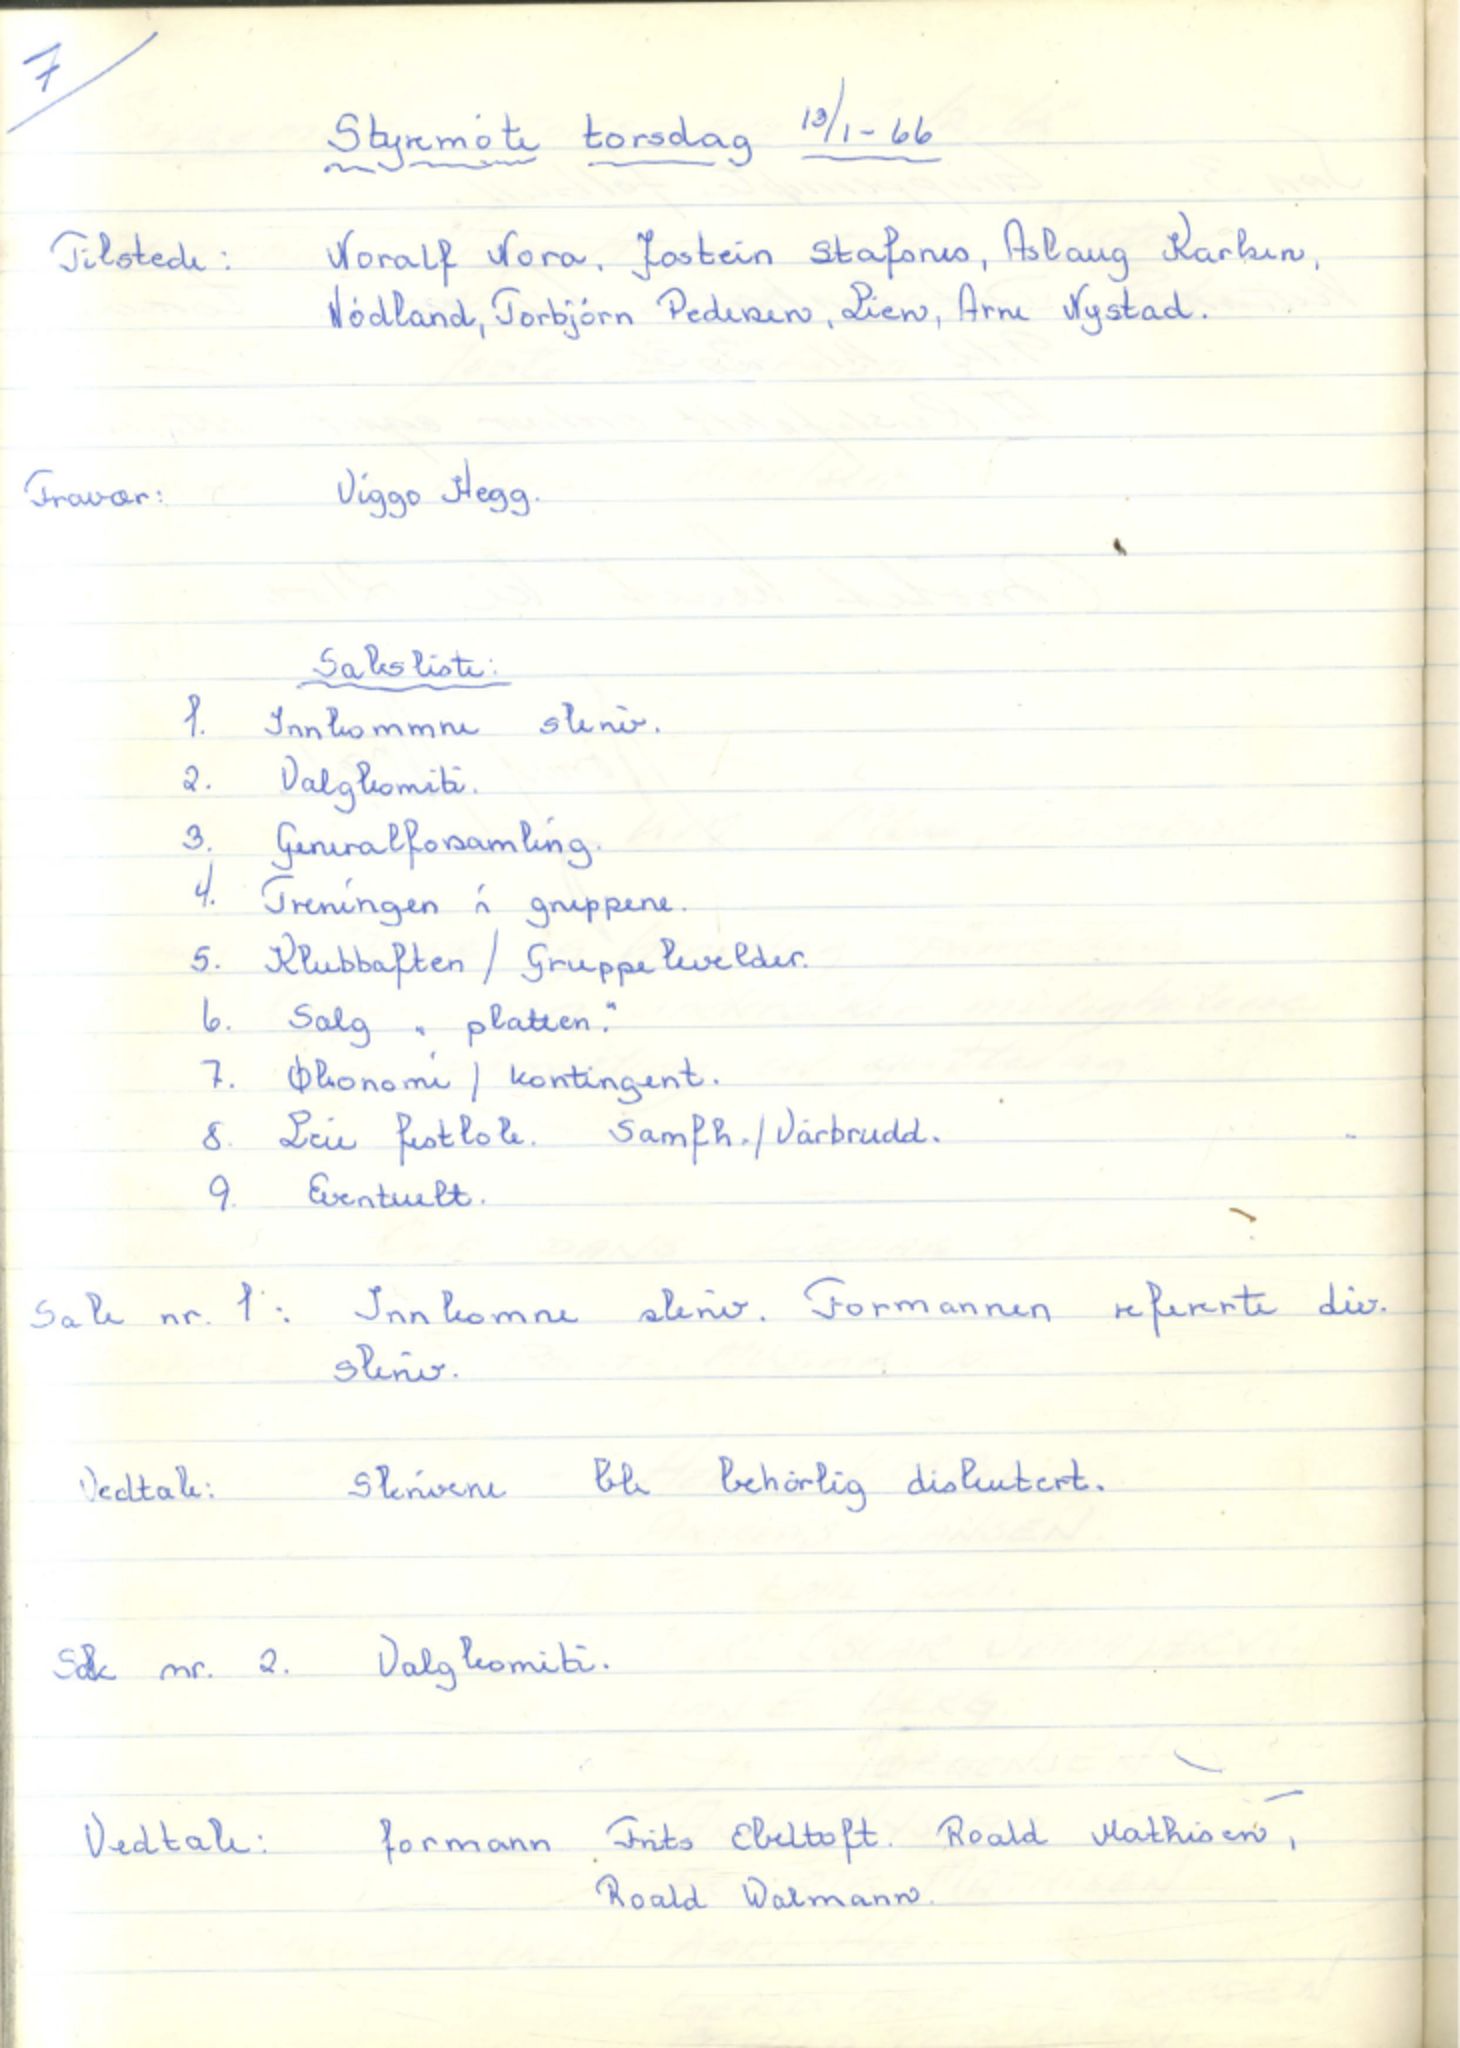 7
Styremöte torsdag 13/1-66
Tilstede: Noralf Nora, Jostein Stafsnes, Aslaug Karlsen,
Nödland, Torbjörn Pedersen, Lien, Arne Nystad.
Fravær: Viggo Hegg.
Saksliste:
1. Innkommne skriv.
2. Valgkomité.
3. Generalforsamling.
4. Treningen i gruppene.
5. Klubbaften / Gruppekvelder.
6. Salg "platten."
7. Økonomi / kontingent.
8. Leie festlok. Samfh. / Vårbrudd.
9. Eventuelt.
Sak nr. 1: Innkomne skriv. Formannen refererte div.
skriv.
Vedtak: Skrivene ble behörlig diskutert.
Sak nr. 2. Valgkomité.
Vedtak: formann Frits Ebeltoft. Roald Mathisen,
Roald Walmann.